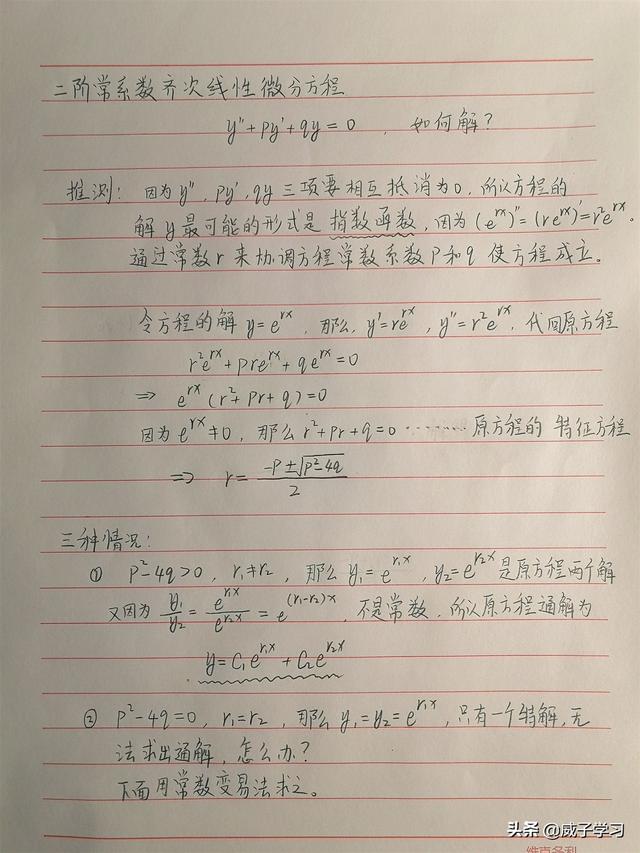 二阶常系数齐次线性微分方程
y″+py′+qy=0 , 如何解?
推测: 因为y″, py′, qy 三项要相互抵消为0, 所以方程的
解y最可能的形式是 指数函数, 因为(e^{rx})″=(re^{rx})′=r²e^{rx}。
通过常数r来协调方程常数系数P和q使方程成立。
令方程的解y=e^{rx}, 那么, y′=re^{rx}, y″=r²e^{rx}, 代回原方程
r²e^{rx}+pre^{rx}+qe^{rx}=0
⇒ e^{rx}(r²+pr+q)=0
因为e^{rx}≠0, 那么r²+pr+q=0 ········ 原方程的 特征方程
⇒ r=\frac{-P±\sqrt{P²-4q}}{2}
三种情况:
① P²-4q>0, r₁≠r₂, 那么y₁=e^{r₁x}, y₂=e^{r₂x}是原方程两个解
又因为 \frac{y₁}{y₂}=\frac{e^{r₁x}}{e^{r₂x}}=e^{(r₁-r₂)x}, 不是常数, 所以原方程通解为
y=C₁e^{r₁x}+C₂e^{r₂x}
② P²-4q=0, r₁=r₂, 那么y₁=y₂=e^{r₁x}, 只有一个特解, 无
法求出通解, 怎么办?
下面用常数变易法求之。
头条 @威子学习